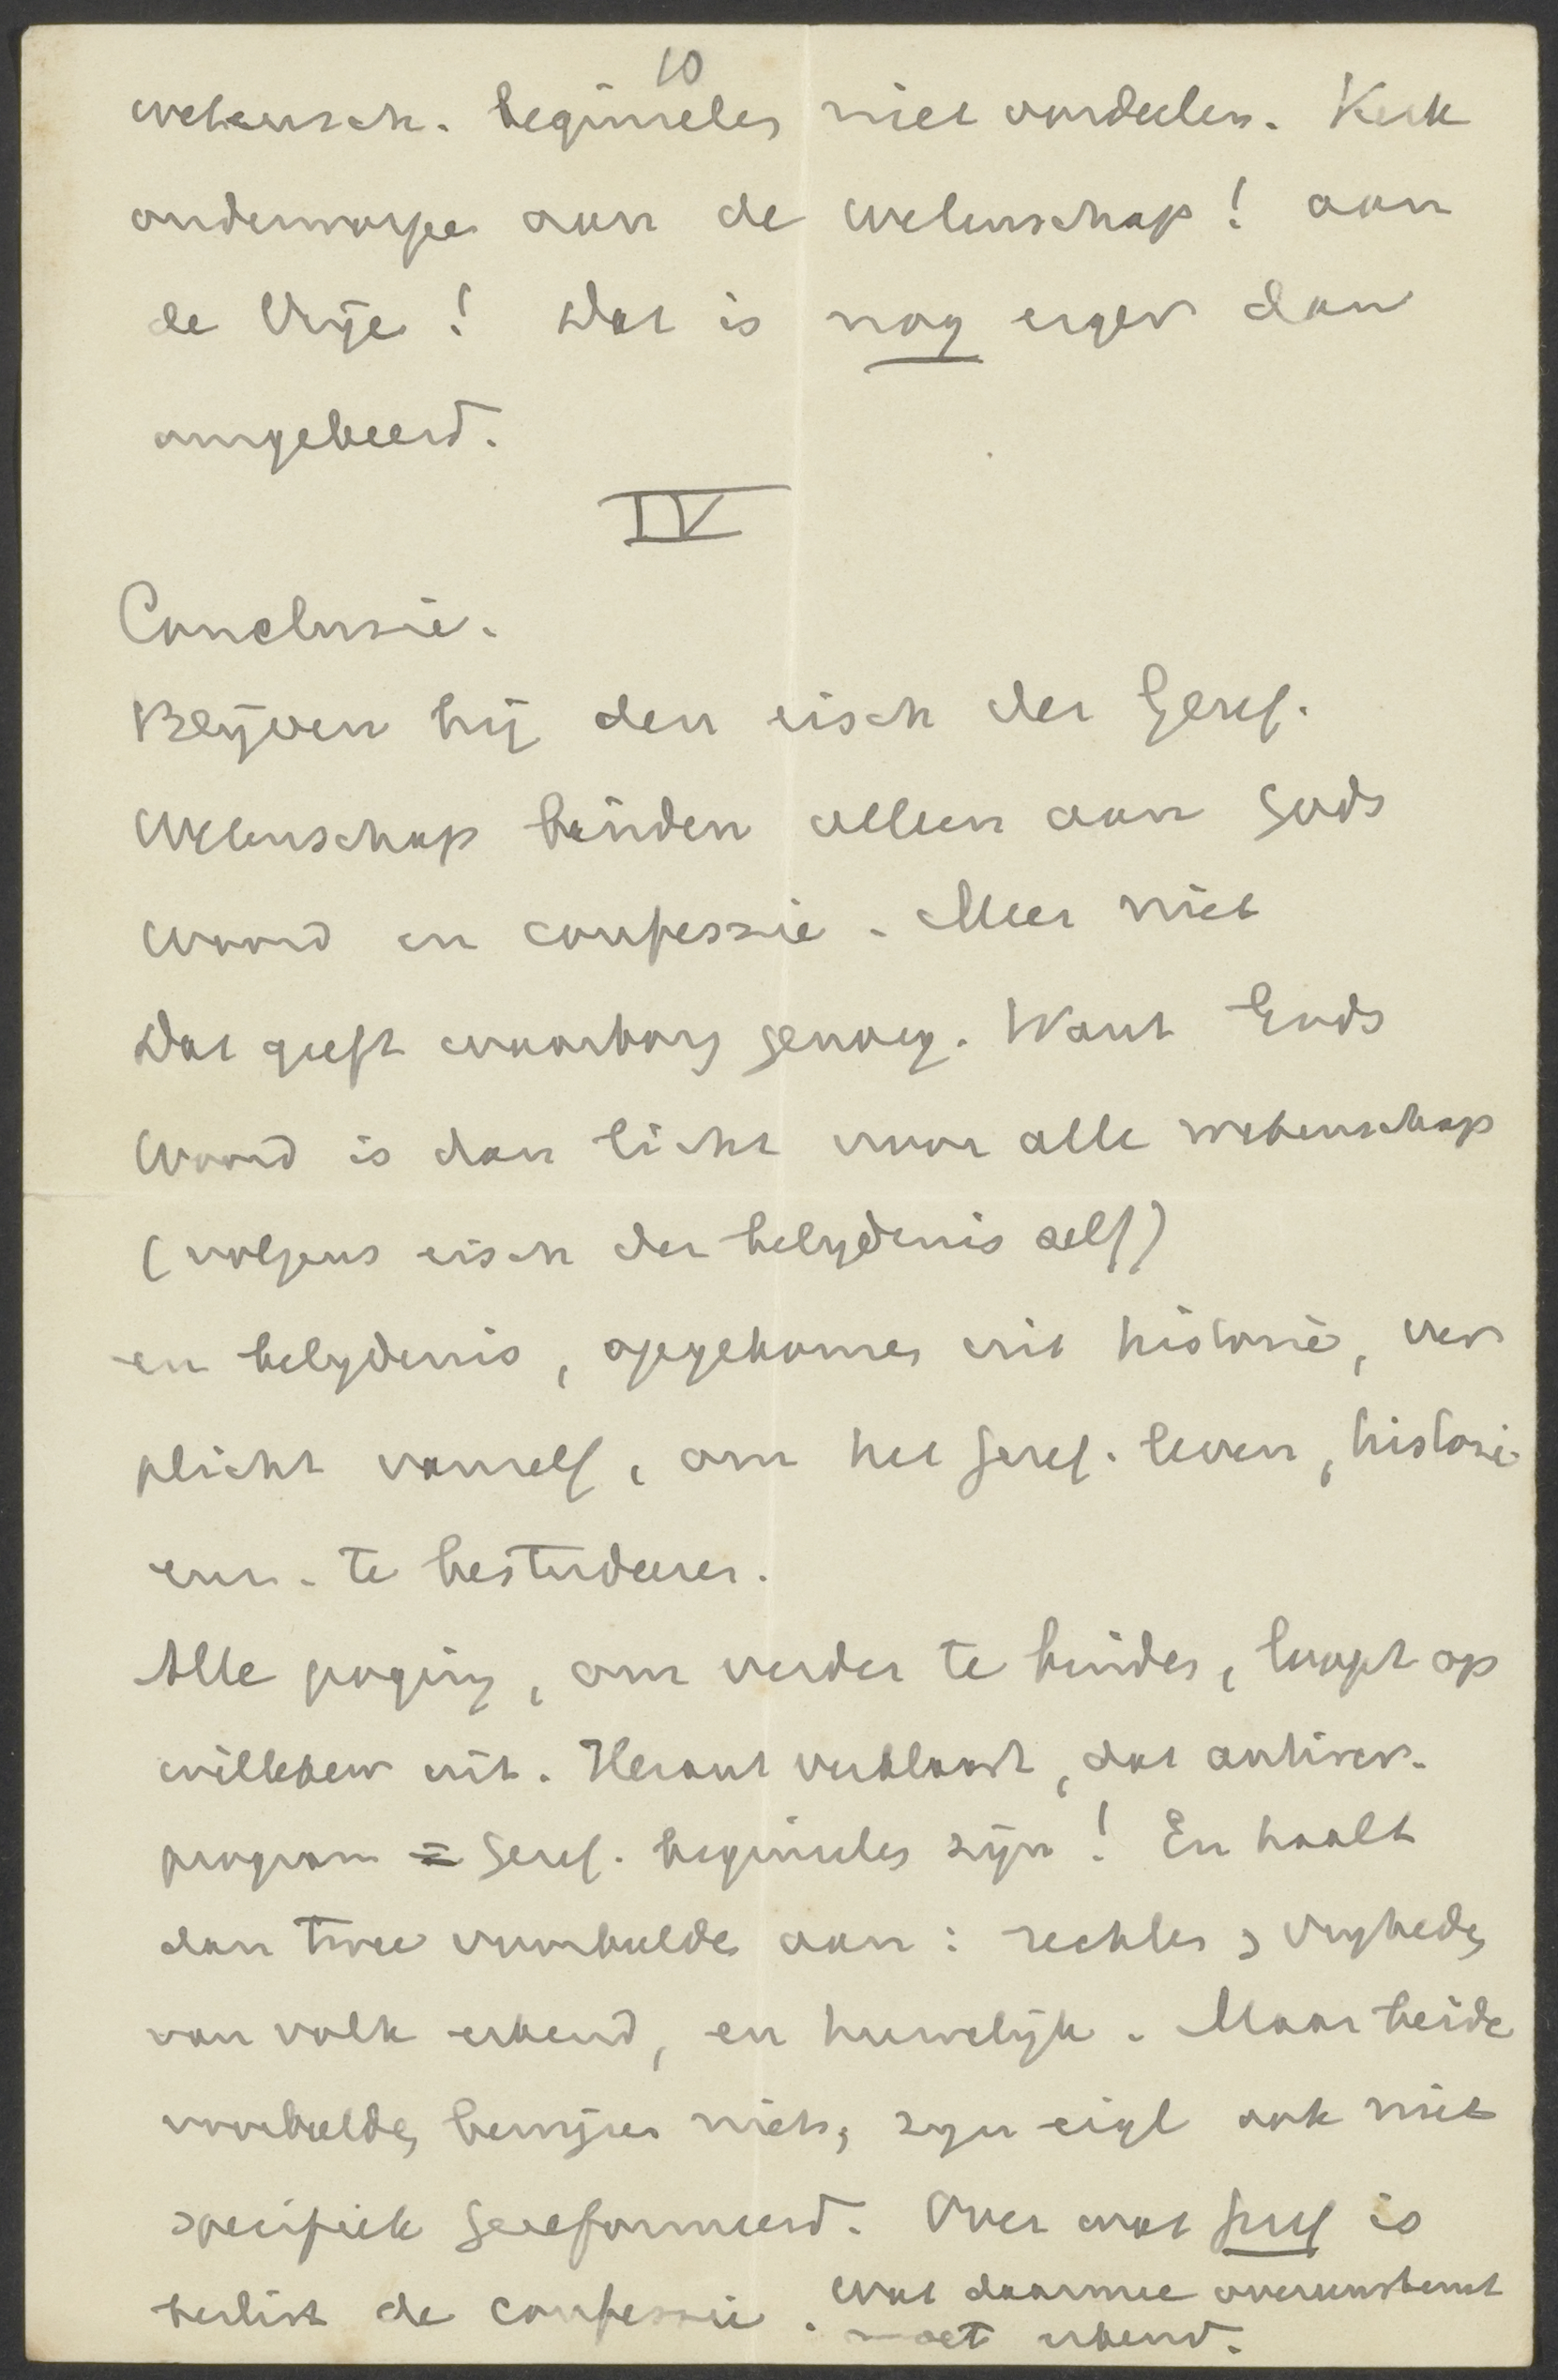 10
wetensch. beginselen niet oordeelen. Kerk
onderworpen aan de wetenschap! aan
de Vrije! Dat is nog erger dan
omgekeerd.
IV
Conclusie.
Blijven bij den eisch der Geref.
Wetenschap binden alleen aan Gods
woord en confessie. Meer niet
Dat geeft waarborg genoeg. Want Gods
Woord is dan licht voor alle wetenschap
(volgens eisch der belydenis zelf)
en belydenis, opgekomen uit historie, ver
plicht vanzelf, om het geref. leven, historie
enz. te bestudeeren.
Alle poging, om verder te binden, loopt op
willekeur uit. Heraut verklaart, dat antirev.
program = geref. beginselen zijn! En haalt
dan twee voorbeelden aan: rechten & vryheden
van volk erkend, en huwelijk. Maar beide
voorbeelden bewijzen niets, zyn eigl ook niet
specifiek gereformeerd. Over wat geref is
beslist de confessie. Wat daarmee overeenstemt
moet erkend.